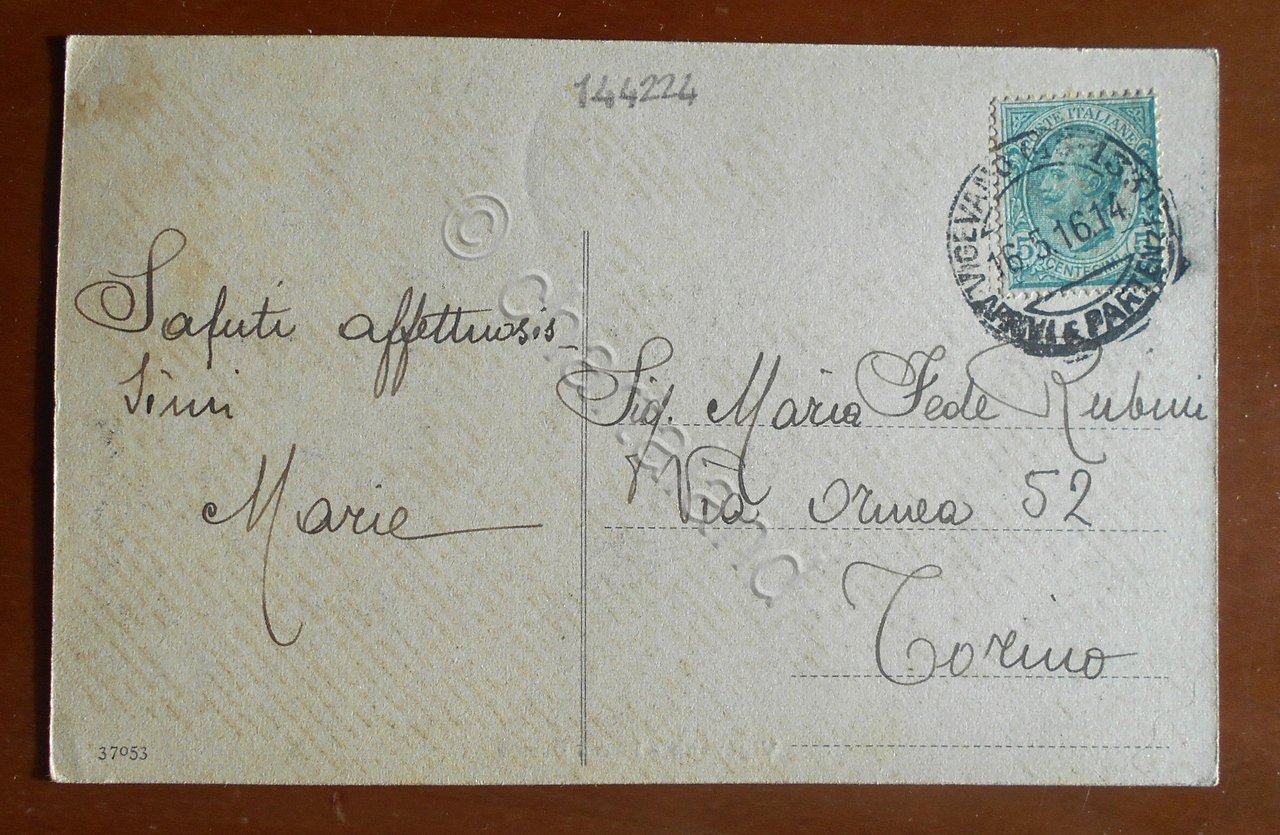 144224
POSTE ITALIANE
5 CENTESIMI 5
VIGEVANO
133
16.5 16.14
ARRIVI E PARTENZE
Saluti affettuosis-
simi
Marie
Sig. Maria Fede Rubini
Via Ormea 52
Torino
37053